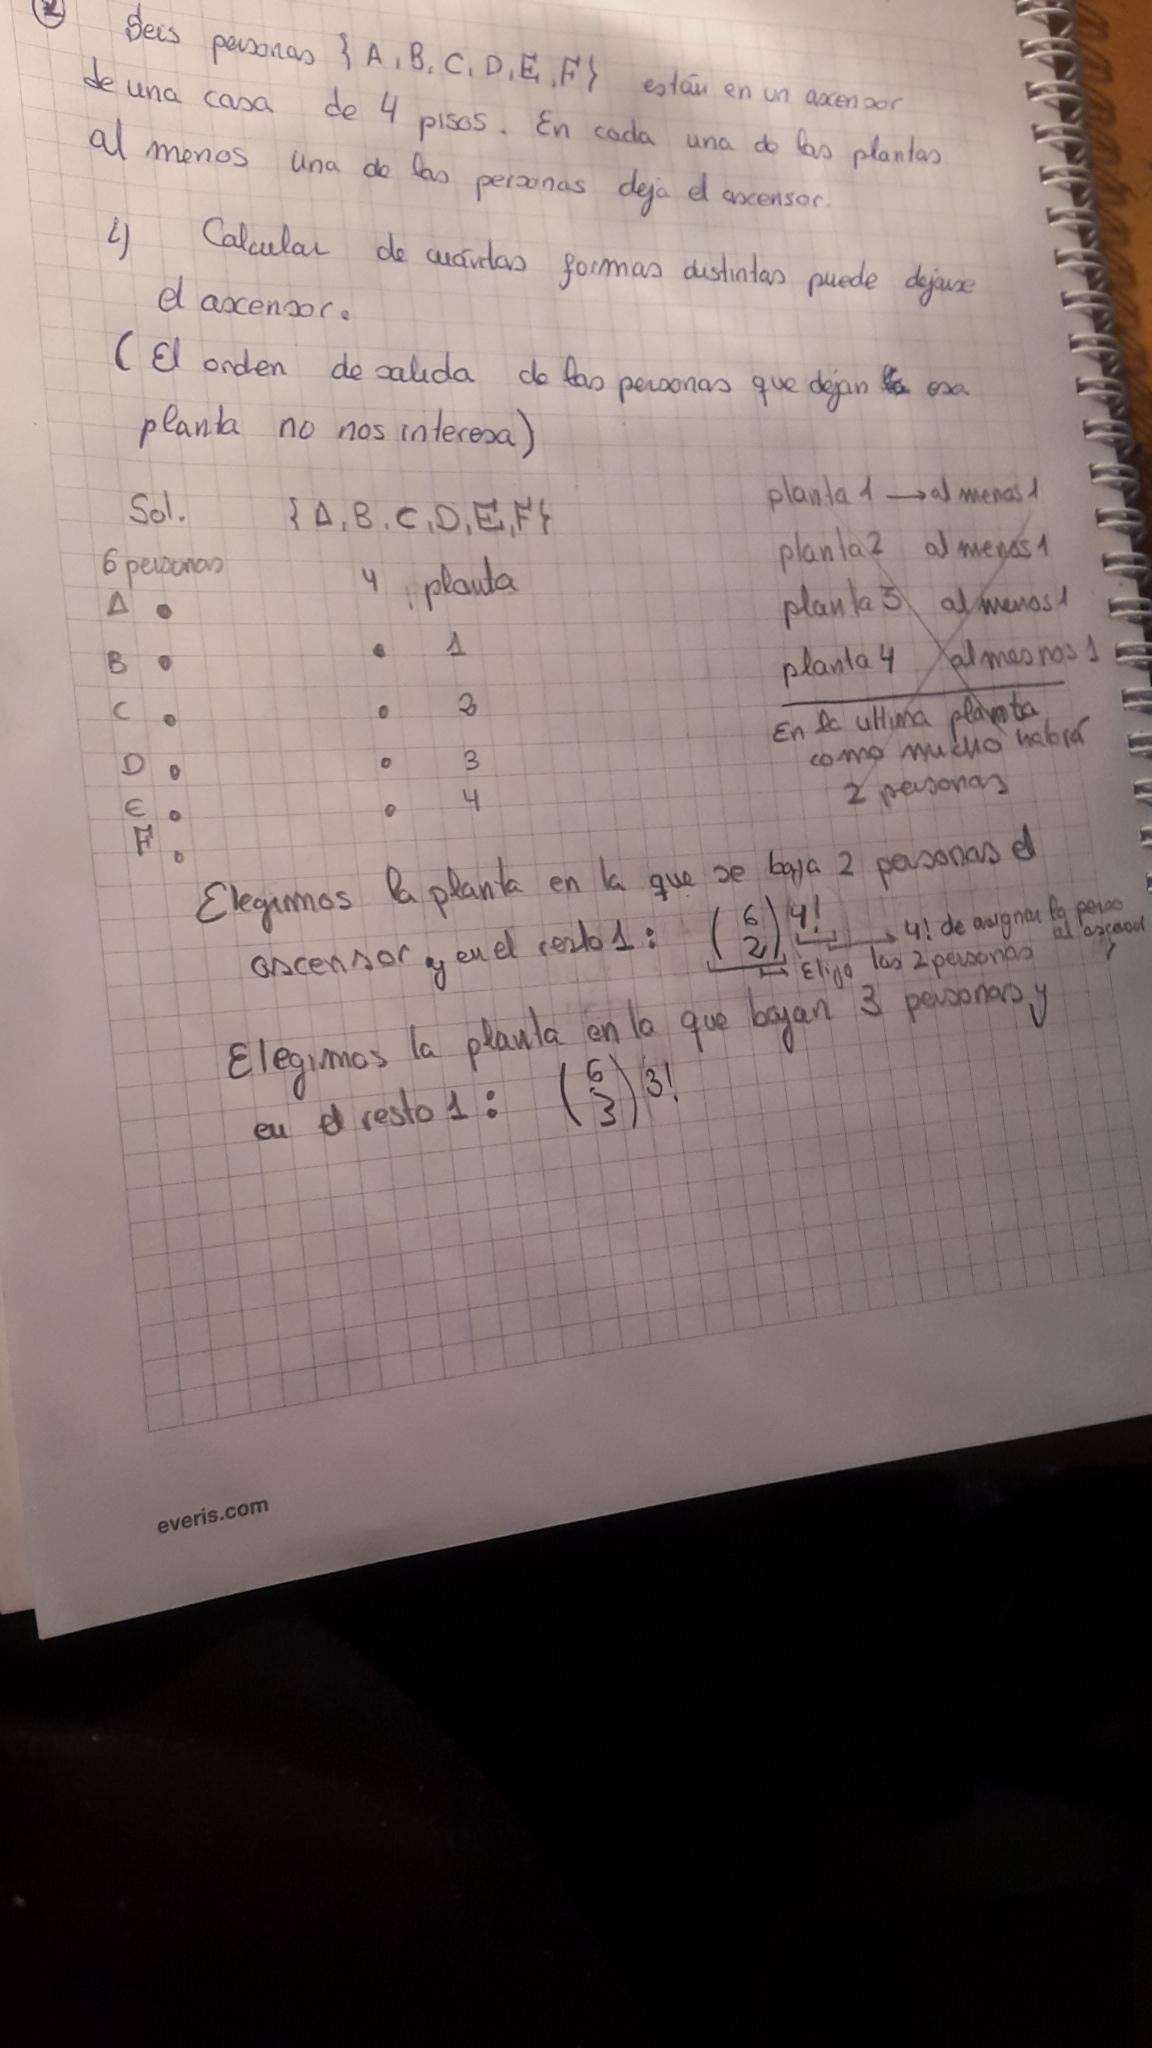 2
Seis personas {A, B, C, D, E, F} están en un ascensor
de una casa de 4 pisos. En cada una de las plantas
al menos una de las personas deja el ascensor.
i) Calcular de cuántas formas distintas puede dejarse
el ascensor.
(El orden de salida de las personas que dejan esa
planta no nos interesa)
Sol. {A, B, C, D, E, F}
6 personas
4 planta
A
B
C
D
E
F
1
2
3
4
planta 1 → al menos 1
planta 2 al menos 1
planta 3 al menos 1
planta 4 al mesnos 1
En la ultima planta
como mucho habrá
2 personas
Elegimos la planta en la que se baja 2 personas el
ascensor y en el resto 1: (6 2) 4! → 4! de asignar la perso
Elijo las 2 personas al ascensor
Elegimos la planta en la que bajan 3 personas y
en el resto 1: (6 3) 3!
everis.com